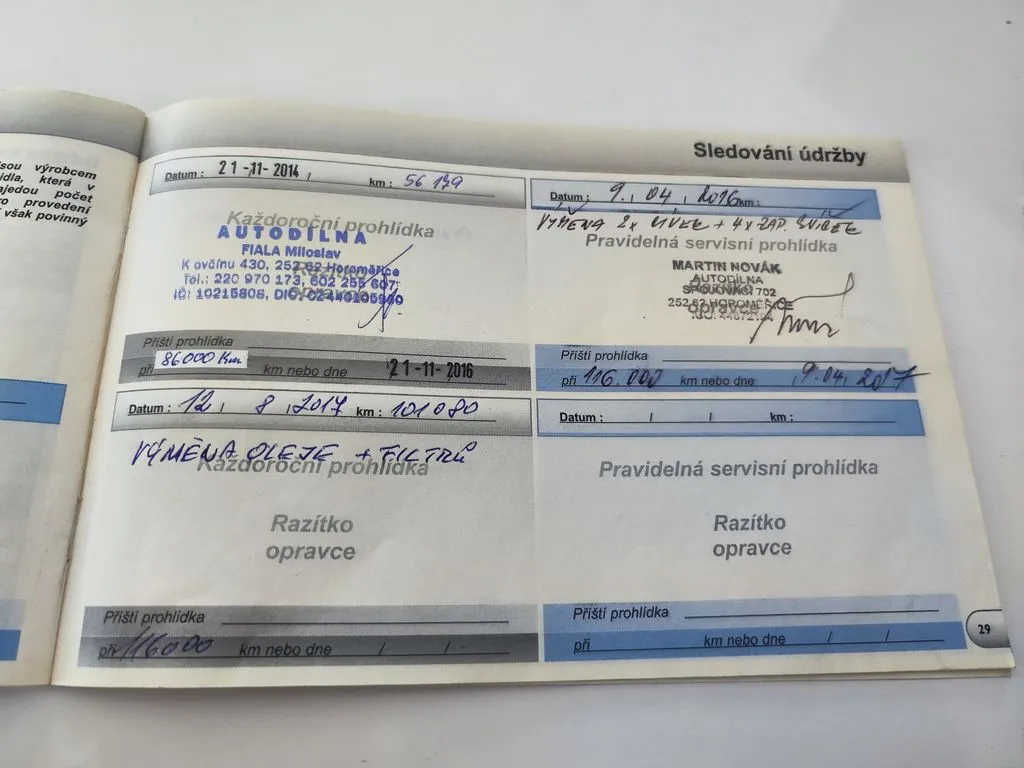 sou výrobcem
idla, která v
ajedou počet
ro provedení
však povinný
Sledování údržby
Datum : 21 -11- 2014 / km : 56 139
Každoroční prohlídka
AUTODÍLNA
FIALA Miloslav
K ovčínu 430, 252 62 Horoměřice
Tel.: 220 970 173, 602 255 607
IČ: 10215808, DIČ:
Razítko
opravce
Příští prohlídka
při 86000 Km km nebo dne 21 -11- 2016
Datum : 9. , 04 , 2016 km :
VÝMĚNA 2x CIVEK + 4x ZAP. SVÍČEK
Pravidelná servisní prohlídka
MARTIN NOVÁK
AUTODÍLNA
702
252 62 HOROMĚŘICE
opravce
Příští prohlídka
při 116.000 km nebo dne 9. 04, 2017
Datum : 12 / 8 / 2017 km : 101 080
VÝMĚNA OLEJE + FILTRŮ
Každoroční prohlídka
Razítko
opravce
Příští prohlídka
při 116000 km nebo dne / /
Datum : / / km :
Pravidelná servisní prohlídka
Razítko
opravce
Příští prohlídka
při km nebo dne / /
29